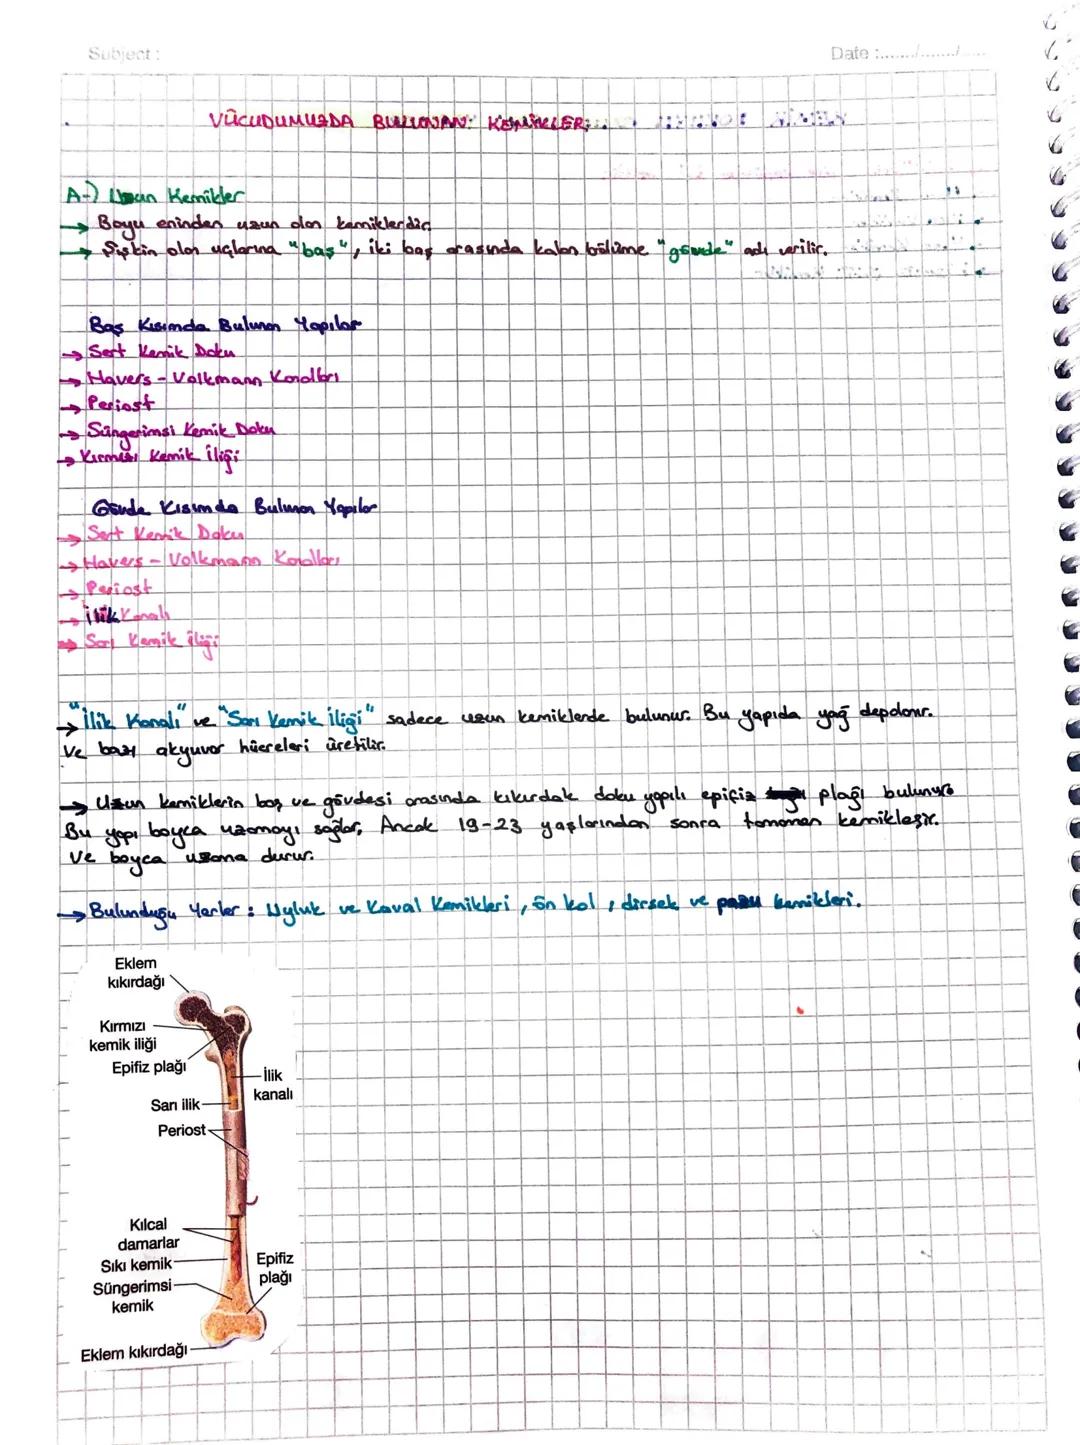 Subject :
Date :......./......./......
VÜCUDUMUZDA BULUNAN KEMİKLER
A-) Uzun Kemikler
→ Boyu eninden uzun olan kemiklerdir.
→ Şişkin olan uçlarına "baş", iki baş arasında kalan bölüme "gövde" adı verilir.
Baş Kısımda Bulunan Yapılar
→ Sert Kemik Doku
→ Havers - Volkmann Kanalları
→ Periost
→ Süngerimsi Kemik Doku
→ Kırmızı Kemik İliği
Gövde Kısımda Bulunan Yapılar
→ Sert Kemik Doku
→ Havers - Volkmann Kanalları
→ Periost
→ İlik Kanalı
→ Sarı Kemik İliği
→ "İlik Kanalı" ve "Sarı Kemik İliği" sadece uzun kemiklerde bulunur. Bu yapıda yağ depolanır.
Ve bazı akyuvar hücreleri üretilir.
→ Uzun kemiklerin baş ve gövdesi arasında kıkırdak doku yapılı epifiz plağı bulunur.
Bu yapı boyca uzamayı sağlar, Ancak 19-23 yaşlarından sonra tamamen kemikleşir.
Ve boyca uzama durur.
→ Bulunduğu Yerler : Uyluk ve Kaval Kemikleri , ön kol , dirsek ve pazu kemikleri.
Eklem
kıkırdağı
Kırmızı
kemik iliği
Epifiz plağı
İlik
kanalı
Sarı ilik
Periost
Kılcal
damarlar
Sıkı kemik
Epifiz
plağı
Süngerimsi
kemik
Eklem kıkırdağı